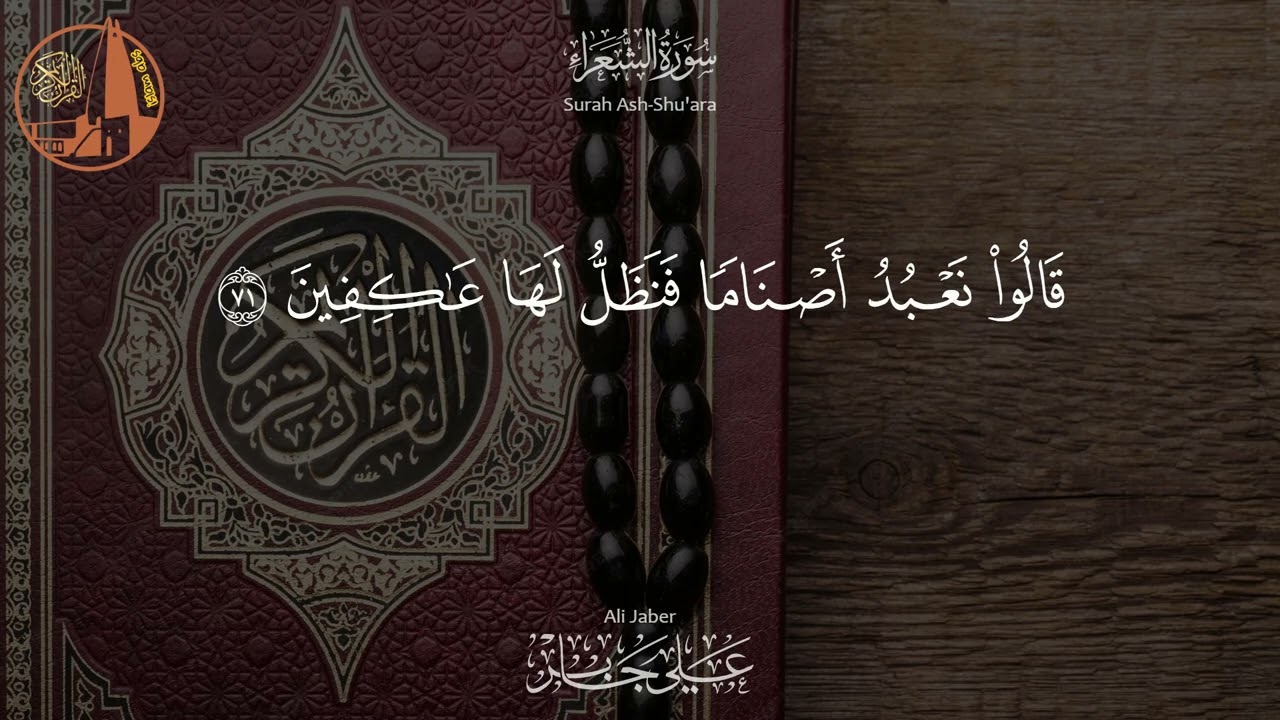 سُورَةُ الشُّعَرَاء
Surah Ash-Shu'ara
قَالُوا۟ نَعْبُدُ أَصْنَامَا فَنَظَلُّ لَهَا عَـٰكِفِينَ ٧١
القرآن الكريم
Ali Jaber
عَلِي جَابِر
القرآن الكريم